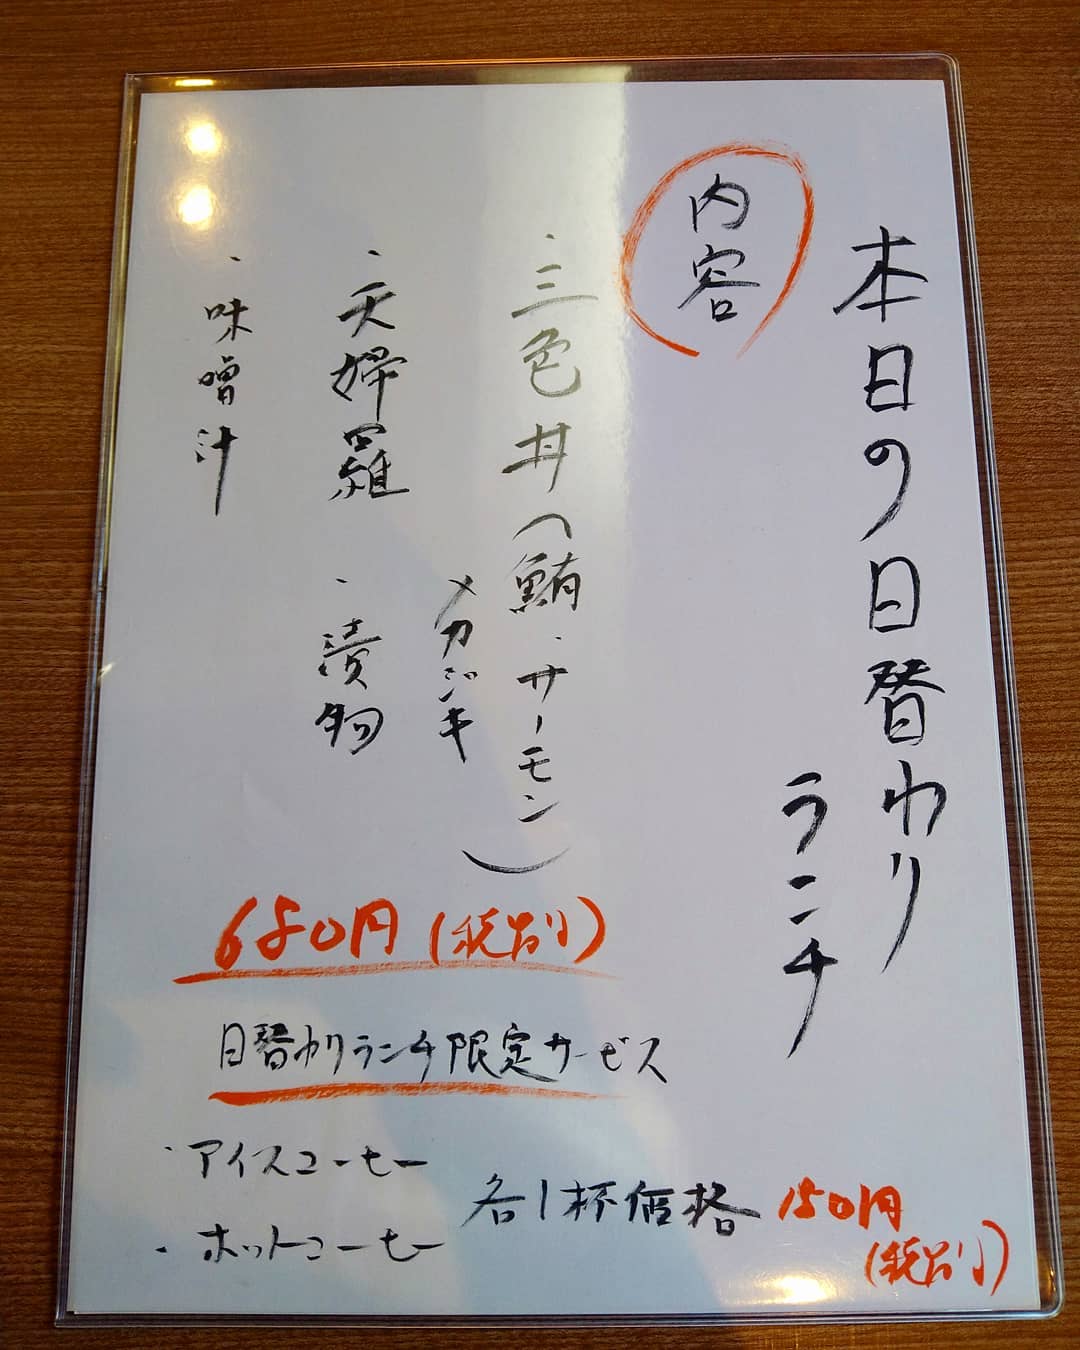 本日の日替わり
ランチ
内容
・三色丼(鮪・サーモン
メカジキ)
・天婦羅 ・漬物
・味噌汁
680円(税別)
日替わりランチ限定サービス
・アイスコーヒー
・ホットコーヒー
各1杯価格 150円
(税別)